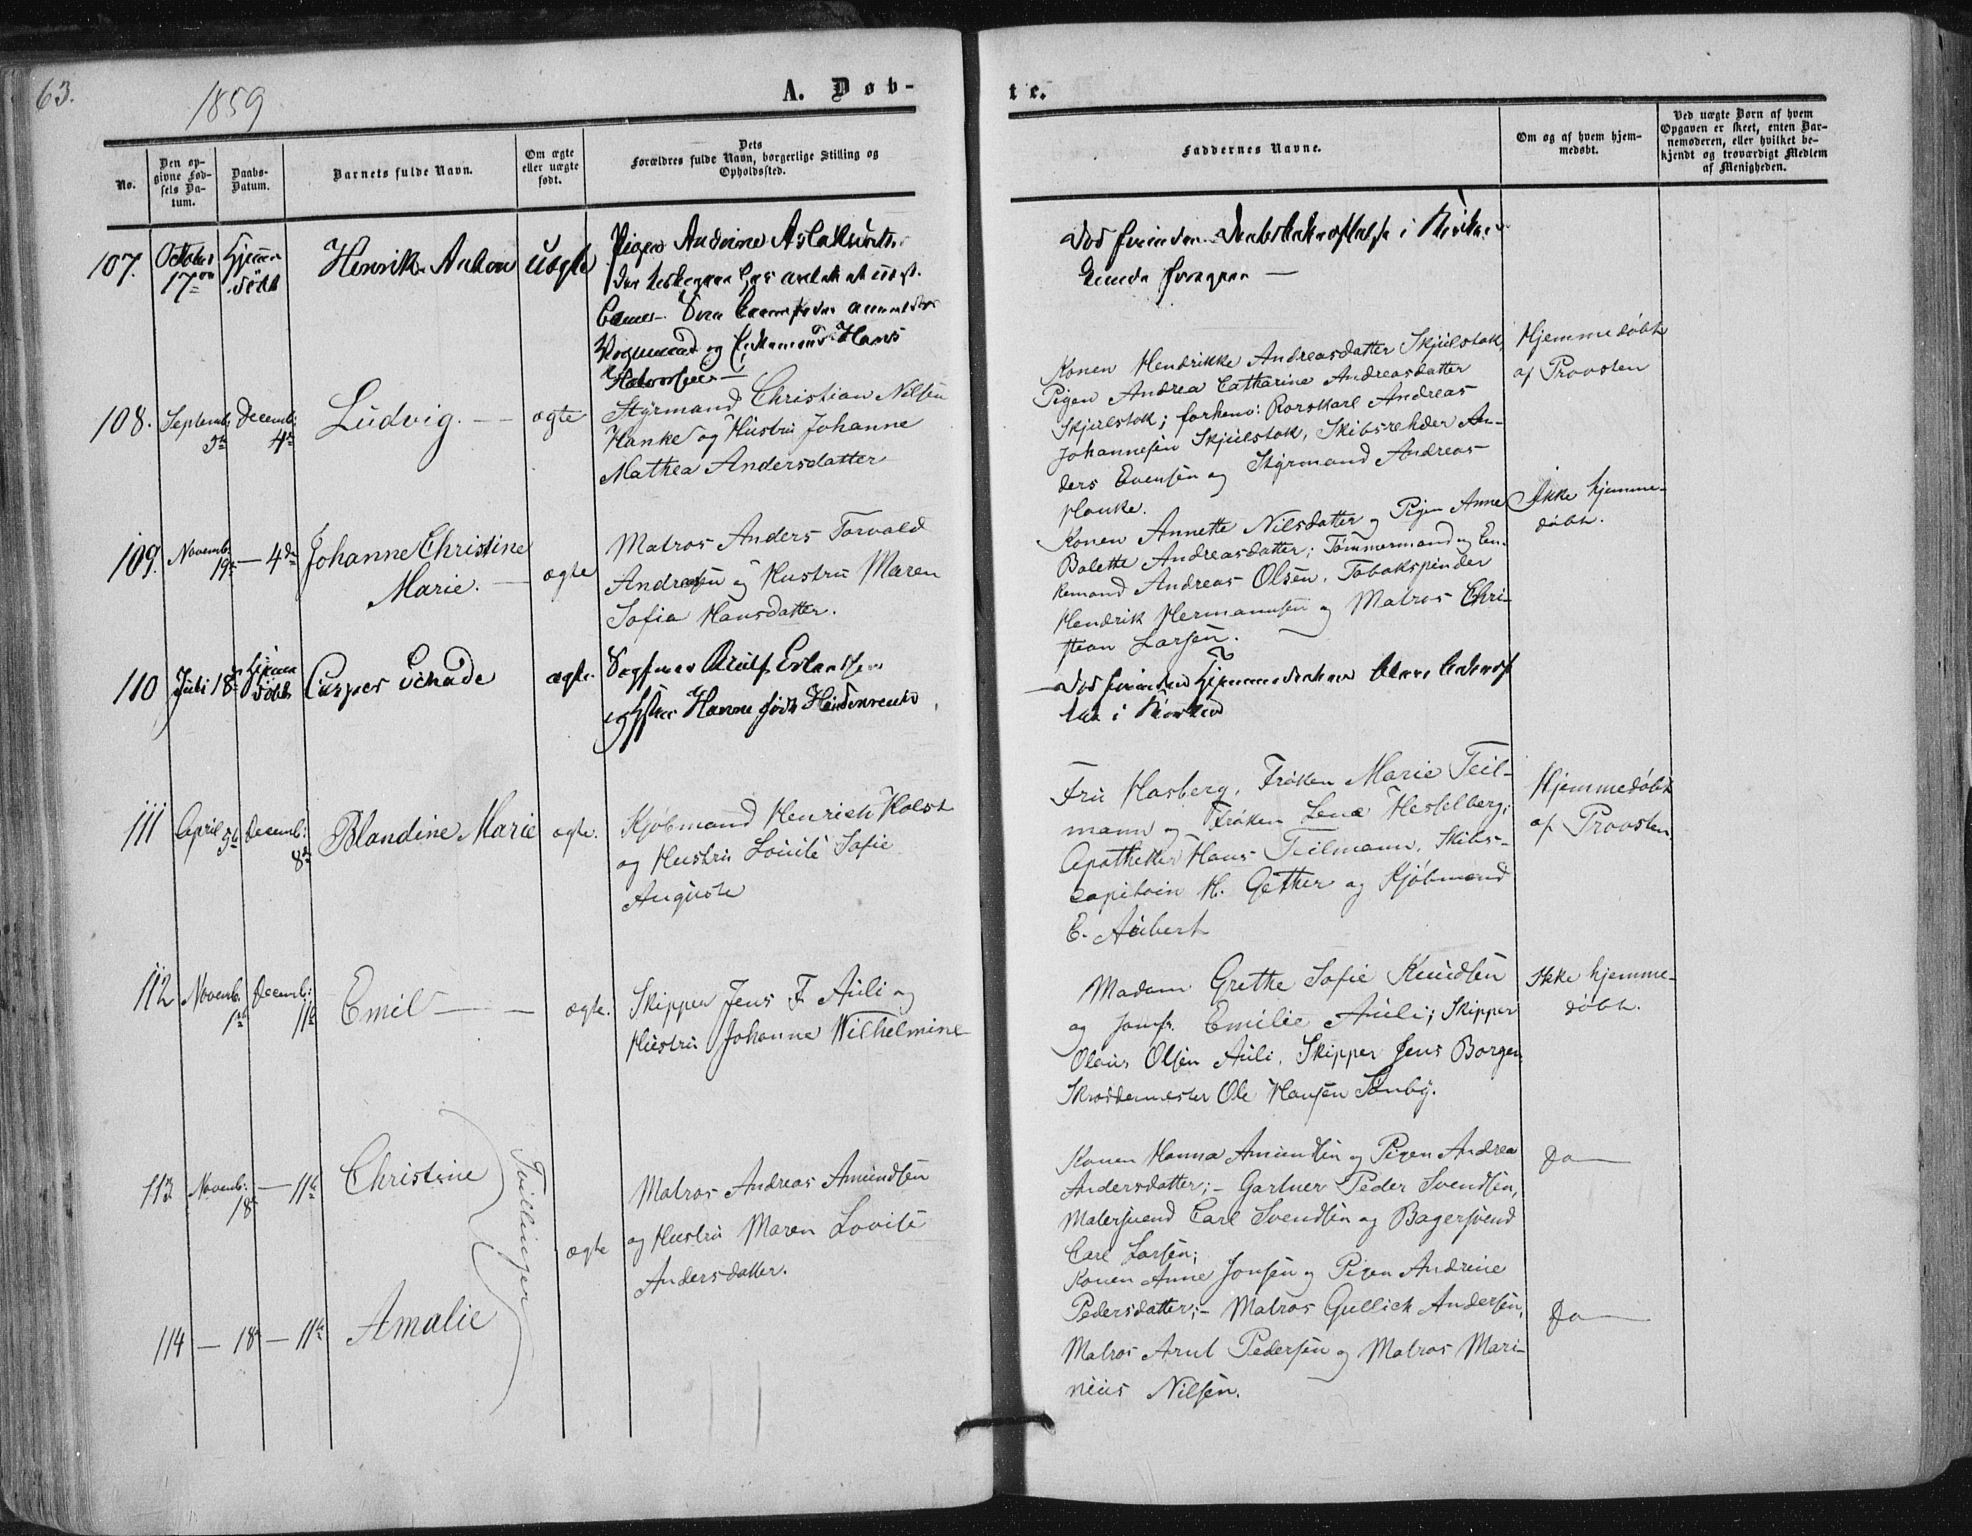 63.
1859
A. Døb-
te.
No.
Den op-
givne Fød-
sels Da-
tum.
Daabs-
Datum.
Barnets fulde Navn.
Om ægte
eller uægte
født.
Dets
Forældres fulde Navn, borgerlige Stilling og
Opholdssted.
Faddernes Navne.
Om og af hvem hjem-
medøbt.
Ved uægte Børn af hvem
Opgaven er skeet, enten Bar-
nemoderen, eller hvilket be-
kjendt og troværdigt Medlem
af Menigheden.
107.
October
17
Hjemme
døbt
Henrik Anton
Uægte
Pigen Andrine Aslaksdatter
og
Hans
Halvorsen
død førinden i Kirken
kunde foregaae —
108.
Septemb:
Decemb:
4de
Ludvig. —
ægte
Styrmand Christian Nilsen
Hanke og Hustru Johanne
Mathea Andersdatter
Konen Hendrikke Andreasdatter Skjulstok,
Pigen Andrea Catharine Andreasdatter
Skjulstok; forhenv: Rorskarl Andreas
Johannesen Skjulstok, Skibsrehder An-
ders Evensen og Styrmand Andreas
Hanke.
Hjemmedøbt
af Provsten
109.
Novemb:
19de
— 4de
Johanne Christine
Marie. —
ægte
Matros Anders Torvald
Andresen og Hustru Maren
Sofia Hansdatter.
Konen Annette Nilsdatter og Pigen Anne
Bolette Andreasdatter; Tømmermand og En-
kemand Andreas Olsen, Tobakspinder
Hendrik Hermannsen og Matros Chri-
stian Larsen.
Ikke hjemme-
døbt.
110
Juli 18
Hjemme
døbt
Casper Schade
ægte
Erlandsen
Hanne født Heidenreich
død førinden
i Kirken
111
April 5te
Decemb:
8de
Blandine Marie
ægte.
Kjøbmand Henrich Holst
og Hustru Lovise Sofie
Auguste
Fru Hasberg, Frøken Marie Teil-
mann og Frøken Lena Hesselberg;
Apotheker Hans Teilmann, Skibs-
capitain H. Gether og Kjøbmand
E. Aubert
Hjemmedøbt
af Provsten.
112
Novemb.
1ste
Decemb:
11te
Emil — —
ægte.
Skipper Jens F. Auli og
Hustru Johanne Wilhelmine
Madam Grethe Sofie Knudsen
og Jomfr. Emilie Auli; Skipper
Olaus Olsen Auli, Skipper Jens Borgen
Skræddermester Ole Hansen Sønby.
Ikke hjemme-
døbt.
113
Novemb:
18de
— 11te
Christine
Tvillinger
ægte
Matros Andreas Amundsen
og Hustru Maren Lovise
Andersdatter.
Konen Hanna Amundsen og Pigen Andrea
Andersdatter; – Gartner Peder Svendsen,
Malersvend Carl Svendsen og Bagersvend
Carl Larsen;
Do —
114 — 18de — 11te
Amalie
Konen Anne Jonsen og Pigen Andrine
Pedersdatter; – Matros Gullich Andersen,
Matros Arnt Pedersen og Matros Mari-
nius Nilsen.
Do —